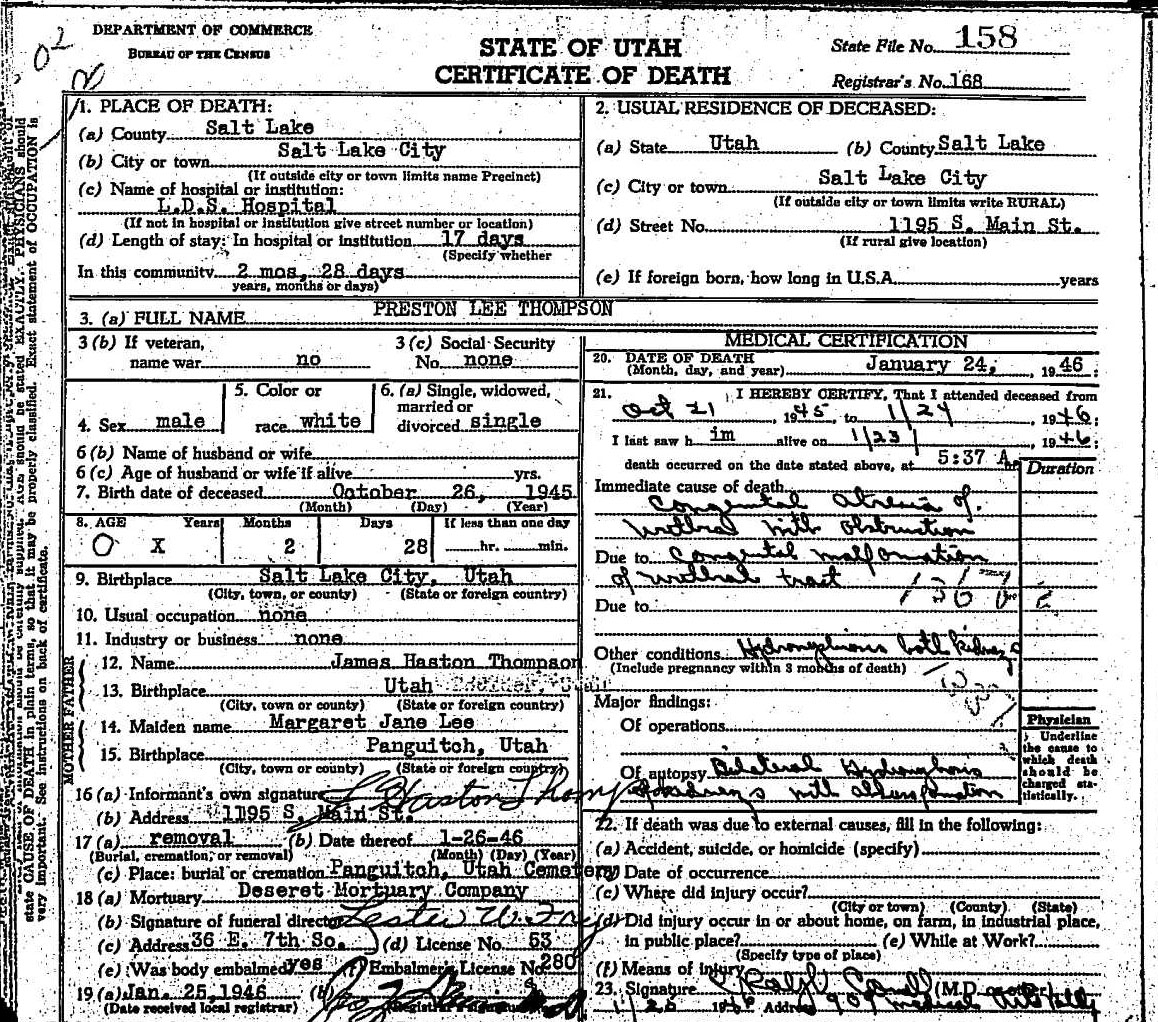 DEPARTMENT OF COMMERCE
BUREAU OF THE CENSUS
STATE OF UTAH
CERTIFICATE OF DEATH
State File No. 158
Registrar's No. 168
1. PLACE OF DEATH:
(a) County Salt Lake
(b) City or town Salt Lake City
(If outside city or town limits name Precinct)
(c) Name of hospital or institution:
L.D.S. Hospital
(If not in hospital or institution give street number or location)
(d) Length of stay: In hospital or institution 17 days
(Specify whether
In this community 2 mos, 28 days
years, months or days)
2. USUAL RESIDENCE OF DECEASED:
(a) State Utah (b) County Salt Lake
(c) City or town Salt Lake City
(If outside city or town limits write RURAL)
(d) Street No. 1195 S. Main St.
(If rural give location)
(e) If foreign born, how long in U.S.A. years
3. (a) FULL NAME PRESTON LEE THOMPSON
3 (b) If veteran, name war no
3 (c) Social Security No. none
4. Sex male
5. Color or race white
6. (a) Single, widowed, married or divorced single
6 (b) Name of husband or wife
6 (c) Age of husband or wife if alive yrs.
7. Birth date of deceased October 26, 1945
(Month) (Day) (Year)
8. AGE Years Months Days If less than one day
0 X 2 28 hr. min.
9. Birthplace Salt Lake City, Utah
(City, town, or county) (State or foreign country)
10. Usual occupation none
11. Industry or business none
FATHER
12. Name James Haston Thompson
13. Birthplace Utah
(City, town or county) (State or foreign country)
MOTHER
14. Maiden name Margaret Jane Lee
15. Birthplace Panguitch, Utah
(City, town or county) (State or foreign country)
16 (a) Informant's own signature J Haston Thomp
(b) Address 1195 S. Main St.
17 (a) removal (b) Date thereof 1-26-46
(Burial, cremation, or removal) (Month) (Day) (Year)
(c) Place: burial or cremation Panguitch, Utah Cemetery
18 (a) Mortuary Deseret Mortuary Company
(b) Signature of funeral director Lester W.
(c) Address 36 E. 7th So. (d) License No. 53
(e) Was body embalmed yes (f) Embalmer's License No. 280
19 (a) Jan. 25, 1946 (b)
(Date received local registrar) (Registrar's signature)
MEDICAL CERTIFICATION
20. DATE OF DEATH
(Month, day, and year) January 24, , 1946 ;
21. I HEREBY CERTIFY, That I attended deceased from
Oct 21 , 1945, to 1/24 , 1946;
I last saw h im alive on 1/23/ , 1946;
death occurred on the date stated above, at 5:37 A m
Duration
Immediate cause of death
Congental atresia of
urethra with obstruction
Due to Congental malfomation
of urethral tract
Due to
Other conditions both kidneys
(Include pregnancy within 3 months of death)
Major findings:
Of operations
Of autopsy Bilateral
of kidneys with
Physician
Underline
the cause to
which death
should be
charged sta-
tistically.
22. If death was due to external causes, fill in the following:
(a) Accident, suicide, or homicide (specify)
(b) Date of occurrence
(c) Where did injury occur?
(City or town) (County) (State)
(d) Did injury occur in or about home, on farm, in industrial place,
in public place? (e) While at Work?
(Specify type of place)
(f) Means of injury
23. Signature Ralph (M.D. or other)
Address
state CAUSE OF DEATH in plain terms, so that it may be properly classified. Exact statement of OCCUPATION is
very important. See instructions on back of certificate.